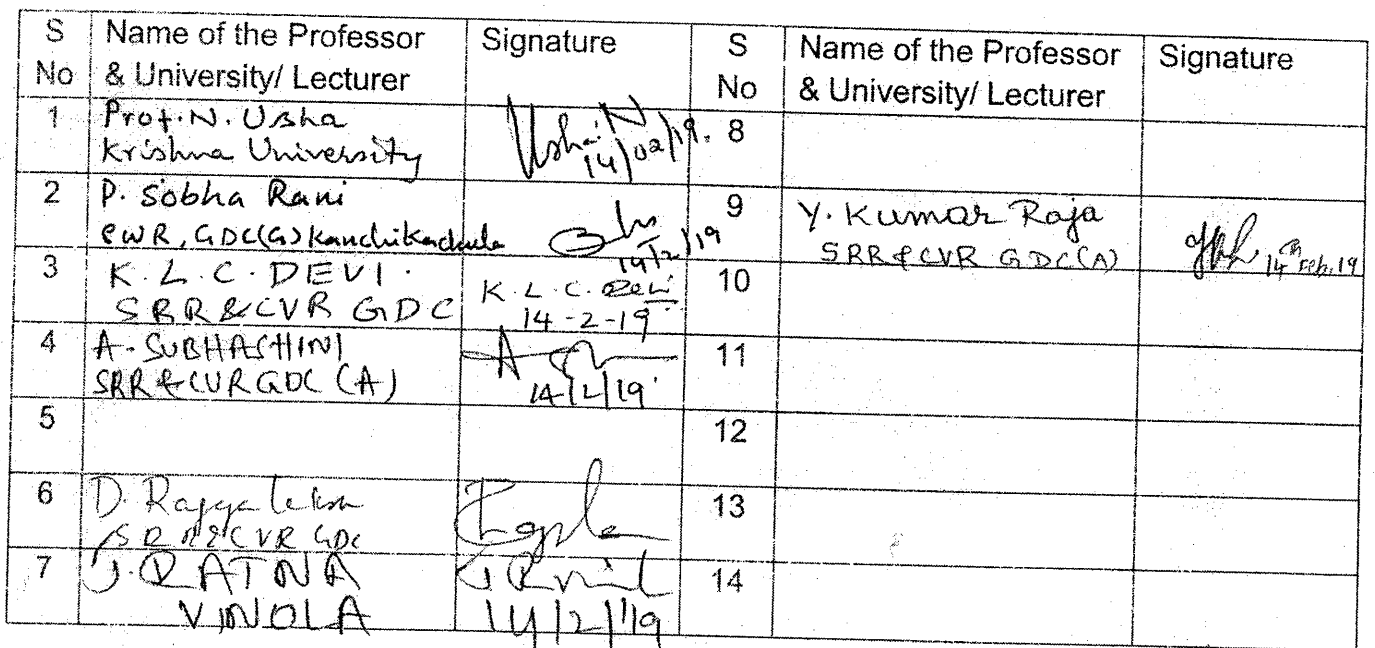 S No Name of the Professor & University/ Lecturer Signature S No Name of the Professor & University/ Lecturer Signature
1 Prof. N. Usha
Krishna University Usha. N
14/02/19.
8
2 P. Sobha Rani
GDC(G) Kanchikacherla 14/2/19
9 Y. Kumar Raja
SRR & CVR GDC(A) 14th Feb. 19
3 K. L. C. DEVI.
SRR & CVR GDC K. L. C. Devi
14-2-19
10
4 A. SUBHASHINI
SRR & CVR GDC (A) 14/2/19
11
5
12
6 D.
SRR & CVR GDC
13
7 RATNA
VINOLA 14/2/19
14